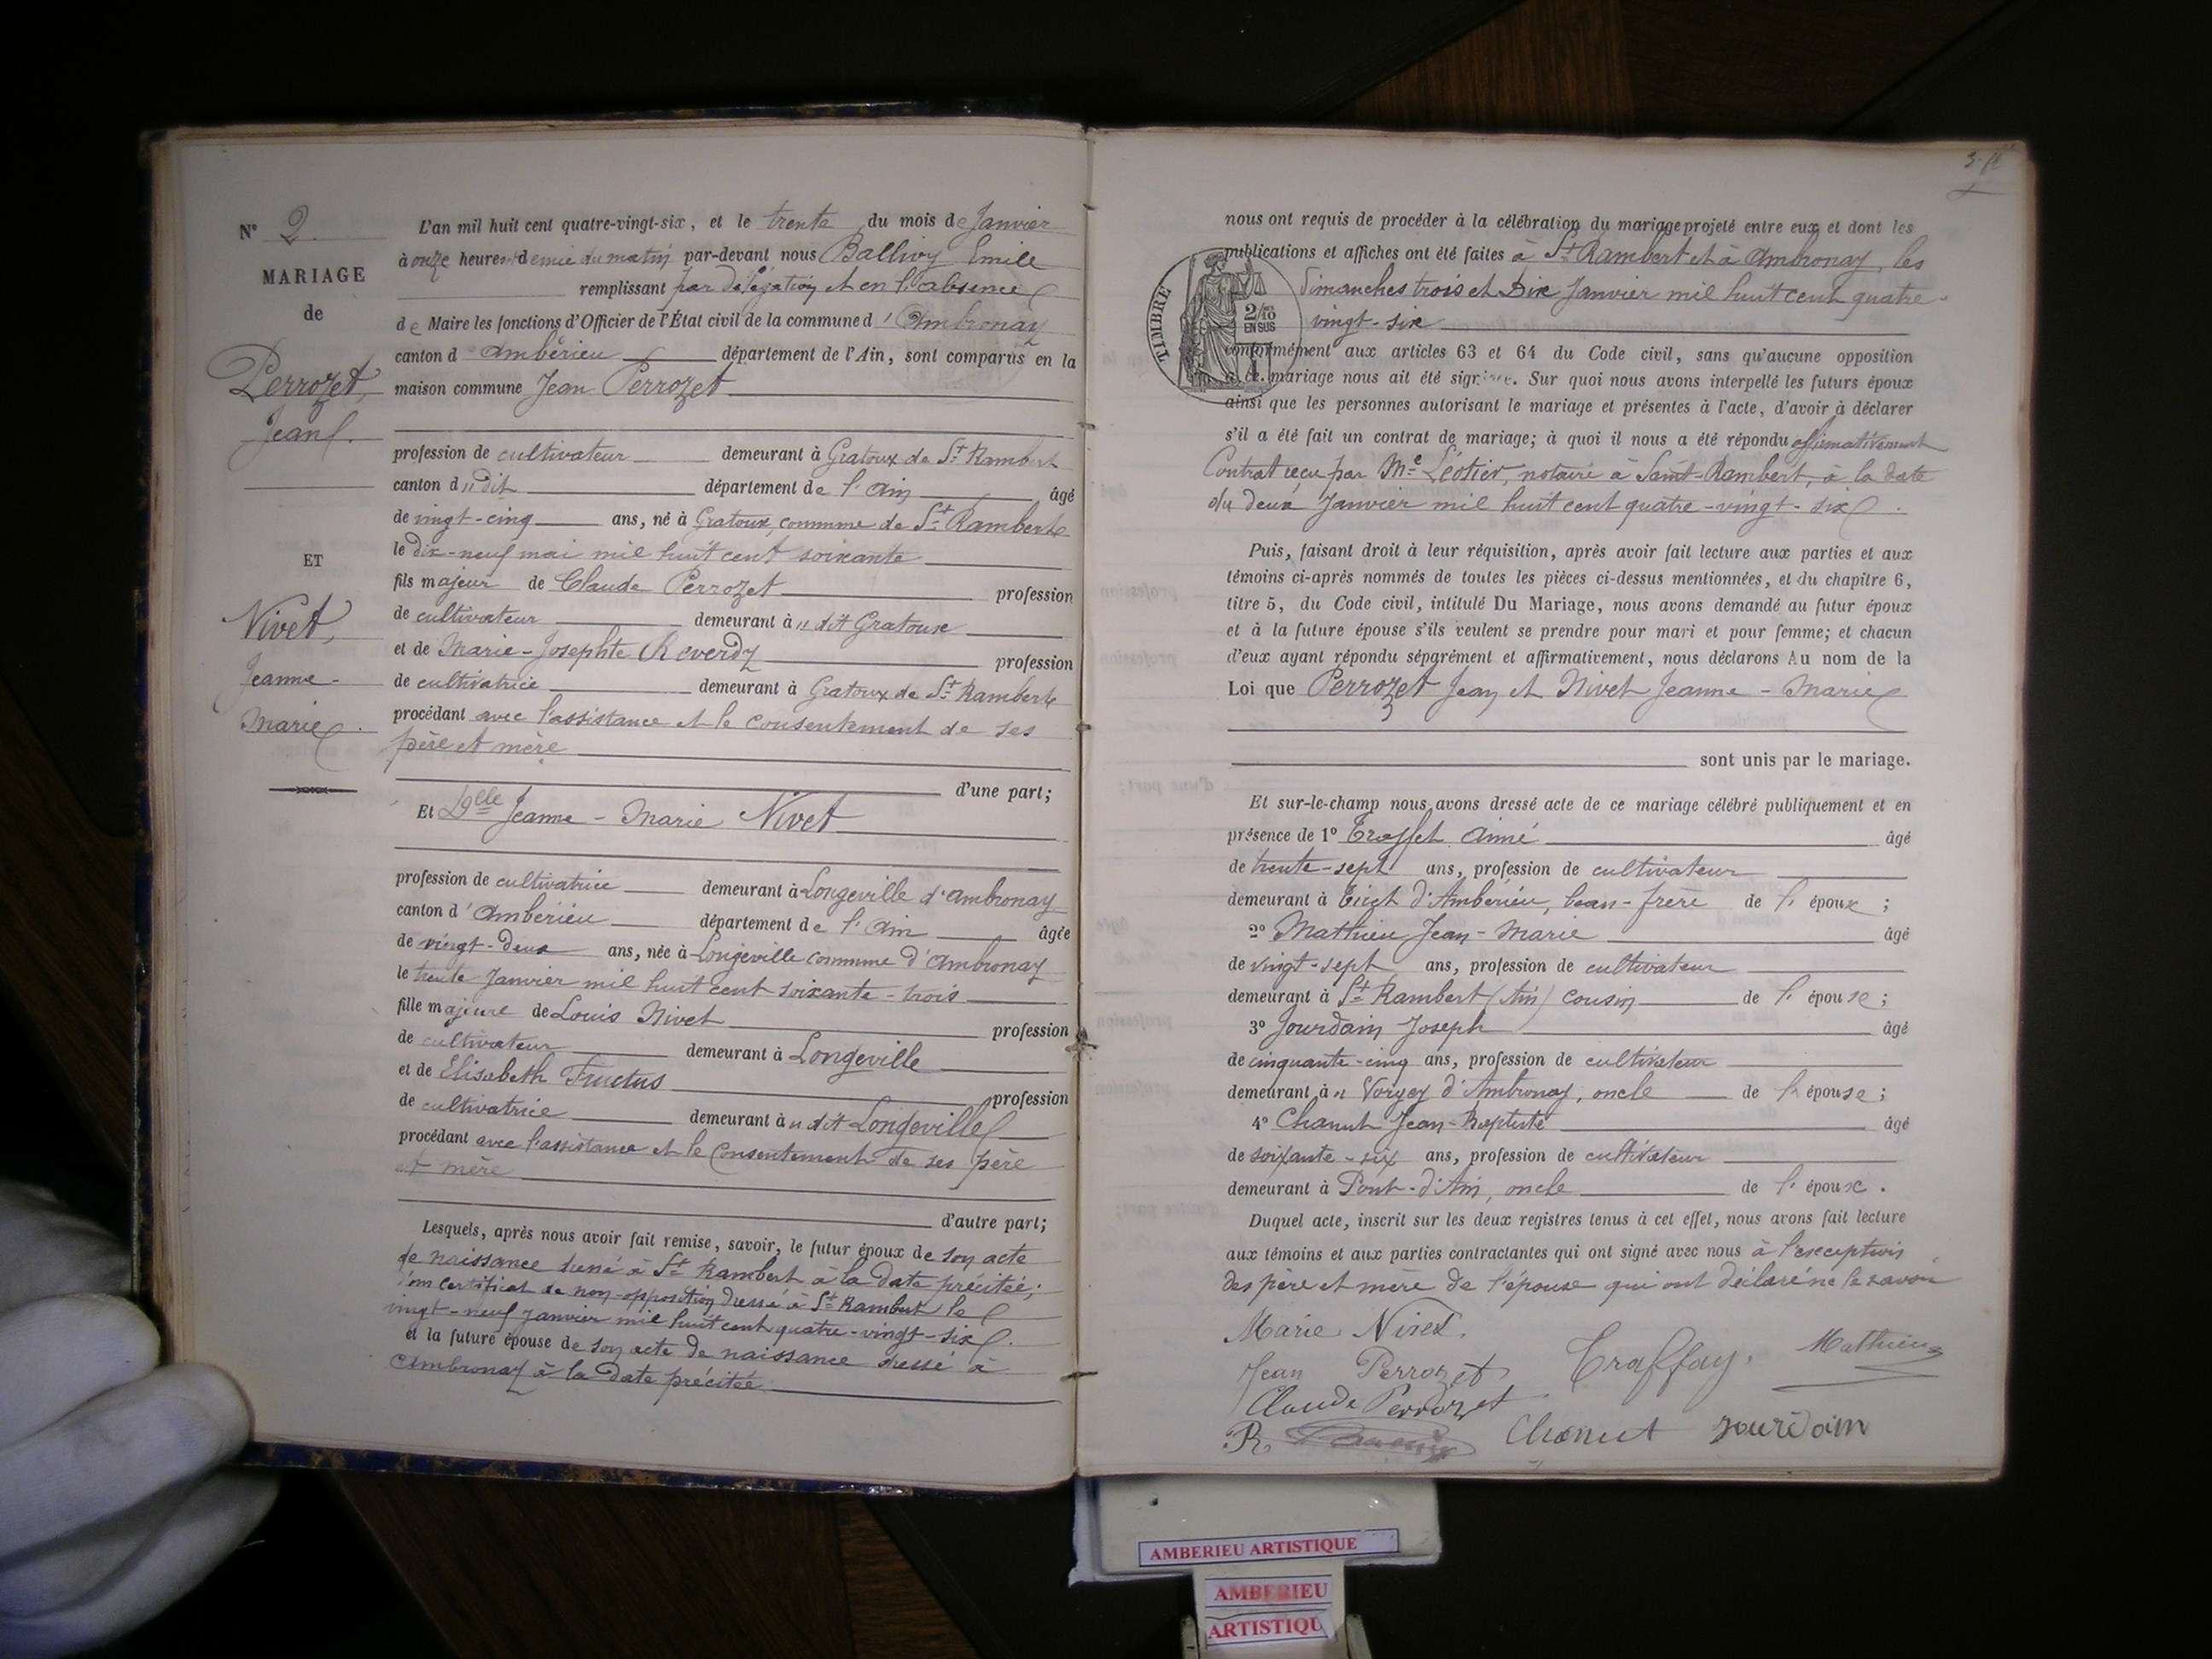 N° 2
MARIAGE
de
Perrozet,
Jean
ET
Nivet,
Jeanne-
Marie
L'an mil huit cent quatre-vingt-six, et le trente du mois de Janvier
à onze heures et demie du matin par-devant nous Ballivy Emile
remplissant par délégation et en l'absence
de Maire les fonctions d'Officier de l'État civil de la commune d'Ambronay
canton d'Ambérieu département de l'Ain, sont comparus en la
maison commune Jean Perrozet
profession de cultivateur demeurant à Gratoux de St Rambert
canton d" dit département de l'Ain âgé
de vingt-cinq ans, né à Gratoux, commune de St Rambert
le dix-neuf mai mil huit cent soixante
fils majeur de Claude Perrozet profession
de cultivateur demeurant à " dit Gratoux
et de Marie-Josephte Reverdy profession
de cultivatrice demeurant à Gratoux de St Rambert
procédant avec l'assistance et le consentement de ses
père et mère
d'une part;
Et Dlle Jeanne-Marie Nivet
profession de cultivatrice demeurant à Longeville d'Ambronay
canton d'Ambérieu département de l'Ain âgée
de vingt-deux ans, née à Longeville commune d'Ambronay
le trente Janvier mil huit cent soixante-trois
fille majeure de Louis Nivet profession
de cultivateur demeurant à Longeville
et de Elisabeth Fructus profession
de cultivatrice demeurant à " dit Longeville
procédant avec l'assistance et le Consentement de ses père
et mère
d'autre part;
Lesquels, après nous avoir fait remise, savoir, le futur époux de son acte
de naissance dressé à St Rambert à la date précitée;
d'un certificat de non-opposition dressé à St Rambert le
vingt-neuf Janvier mil huit cent quatre-vingt-six.
et la future épouse de son acte de naissance dressé à
Ambronay à la date précitée
nous ont requis de procéder à la célébration du mariage projeté entre eux et dont les
publications et affiches ont été faites à St Rambert et à Ambronay, les
dimanches trois et Dix Janvier mil huit cent quatre-
vingt-six
TIMBRE
2/10 EN SUS
conformément aux articles 63 et 64 du Code civil, sans qu'aucune opposition
à ce mariage nous ait été signifiée. Sur quoi nous avons interpellé les futurs époux
ainsi que les personnes autorisant le mariage et présentes à l'acte, d'avoir à déclarer
s'il a été fait un contrat de mariage; à quoi il nous a été répondu affirmativement
Contrat reçu par Me Léotier, notaire à Saint-Rambert, à la date
du deux Janvier mil huit cent quatre-vingt-six.
Puis, faisant droit à leur réquisition, après avoir fait lecture aux parties et aux
témoins ci-après nommés de toutes les pièces ci-dessus mentionnées, et du chapitre 6,
titre 5, du Code civil, intitulé Du Mariage, nous avons demandé au futur époux
et à la future épouse s'ils veulent se prendre pour mari et pour femme; et chacun
d'eux ayant répondu séparément et affirmativement, nous déclarons Au nom de la
Loi que Perrozet Jean et Nivet Jeanne-Marie
sont unis par le mariage.
Et sur-le-champ nous avons dressé acte de ce mariage célébré publiquement et en
présence de 1° Aimé âgé
de trente-sept ans, profession de cultivateur
demeurant à d'Ambérieu, beau-frère de l'époux;
2° Mathieu Jean-Marie âgé
de vingt-sept ans, profession de cultivateur
demeurant à St Rambert (Ain) cousin de l'épouse;
3° Jourdain Joseph âgé
de cinquante-cinq ans, profession de cultivateur
demeurant à " d'Ambronay, oncle de l'épouse;
4° Chanut Jean-Baptiste âgé
de soixante-six ans, profession de cultivateur
demeurant à Pont-d'Ain, oncle de l'époux.
Duquel acte, inscrit sur les deux registres tenus à cet effet, nous avons fait lecture
aux témoins et aux parties contractantes qui ont signé avec nous à l'exception
des père et mère de l'épouse qui ont déclaré ne le savoir
Marie Nivet.
Jean Perrozet
Traffay.
Mathieu
Claude Perrozet
Chanut
Jourdain
AMBERIEU ARTISTIQUE
AMBERIEU
ARTISTIQU